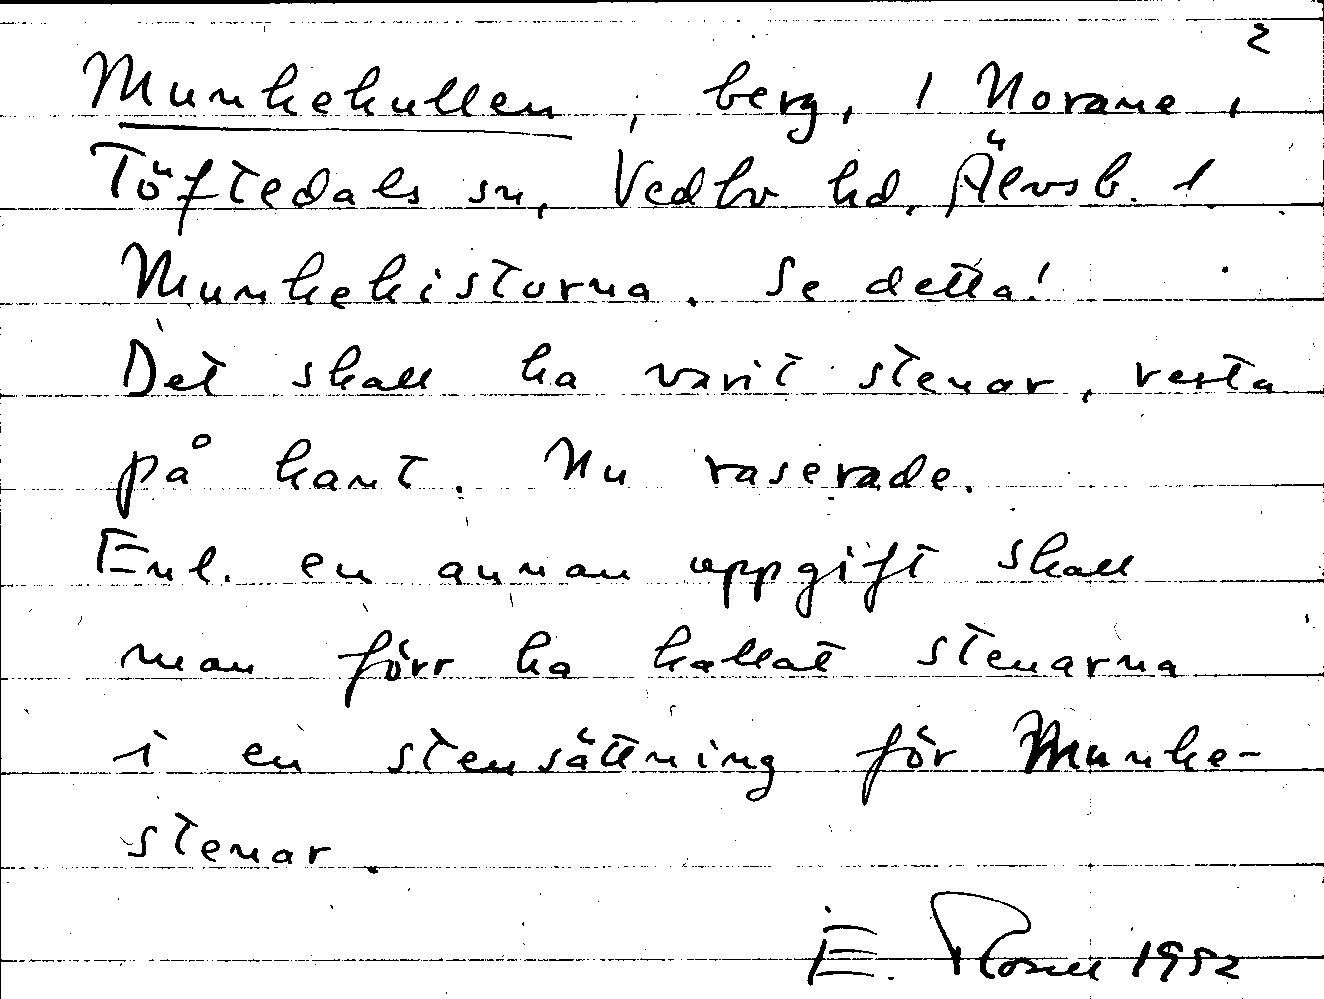 2
Munkekullen, berg, i Norane,
Töftedals sn, Vedbo hd, Älvsb. l.
Munkekistorna. Se detta!
Det skall ha varit stenar, resta
på kant. Nu raserade.
Enl. en annan uppgift skall
man förr ha kallat stenarna
i en stensättning för Munke-
stenar.
E. 1952